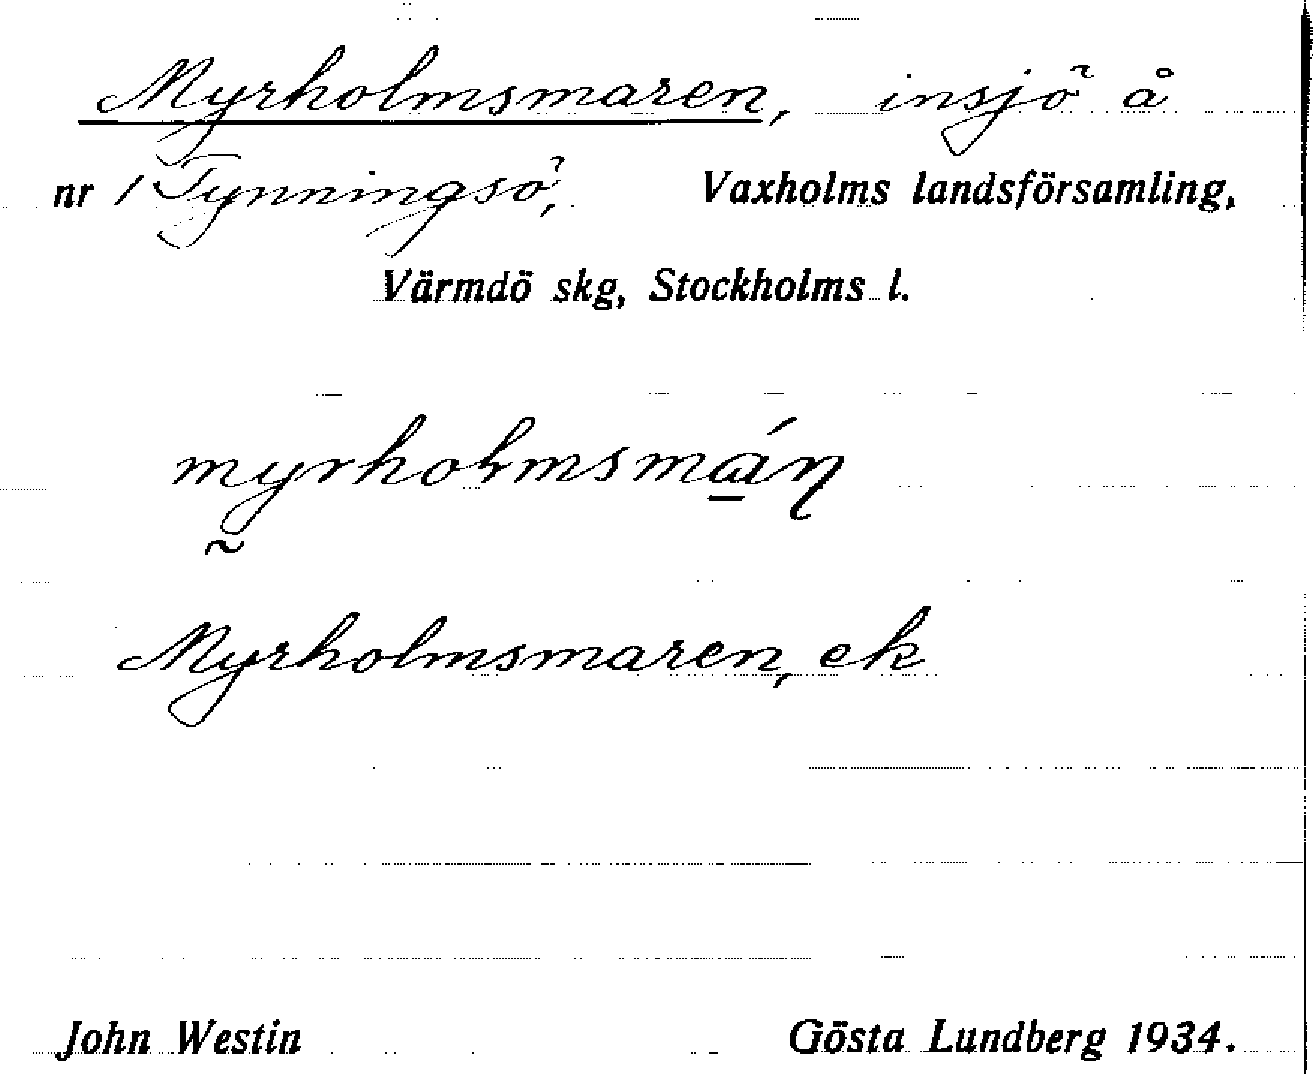 Myrholmsmaren, insjö å
nr 1 Tynningsö, Vaxholms landsförsamling,
Värmdö skg, Stockholms l.
Myrholmsmaren, ek
John Westin Gösta Lundberg 1934.